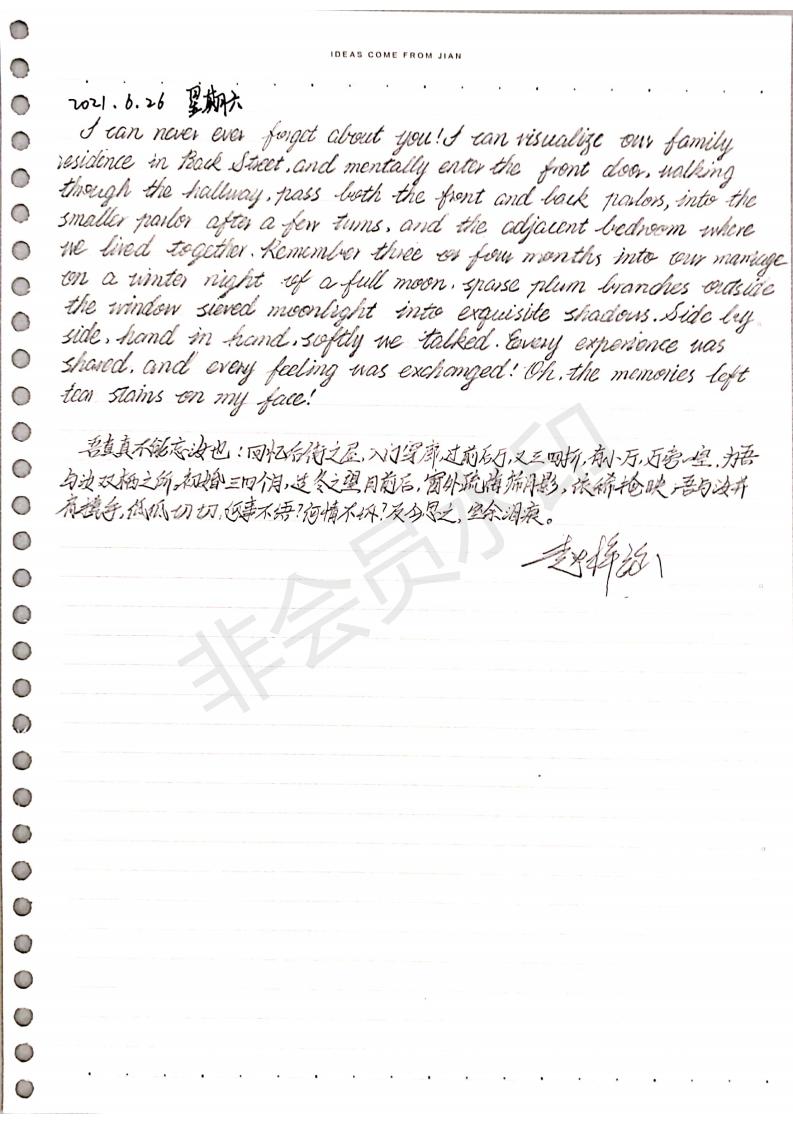 IDEAS COME FROM JIAN
2021.6.26 星期六
I can never ever forget about you! I can visualize our family
residence in Back Street, and mentally enter the front door, walking
through the hallway, pass both the front and back parlors, into the
smaller parlor after a few turns, and the adjacent bedroom where
we lived together. Remember three or four months into our marriage
on a winter night of a full moon, sparse plum branches outside
the window sieved moonlight into exquisite shadows. Side by
side, hand in hand, softly we talked. Every experience was
shared, and every feeling was exchanged! Oh, the memories left
tear stains on my face!
吾真真不能忘汝也！回忆后街之屋，入门穿廊，过前后厅，又三四折，有小厅，厅旁一室，为吾
与汝双栖之所。初婚三四个月，适冬之望日前后，窗外疏梅筛月影，依稀掩映，吾与汝并
肩携手，低低切切，何事不语？何情不诉？及今思之，空余泪痕。
非会员水印